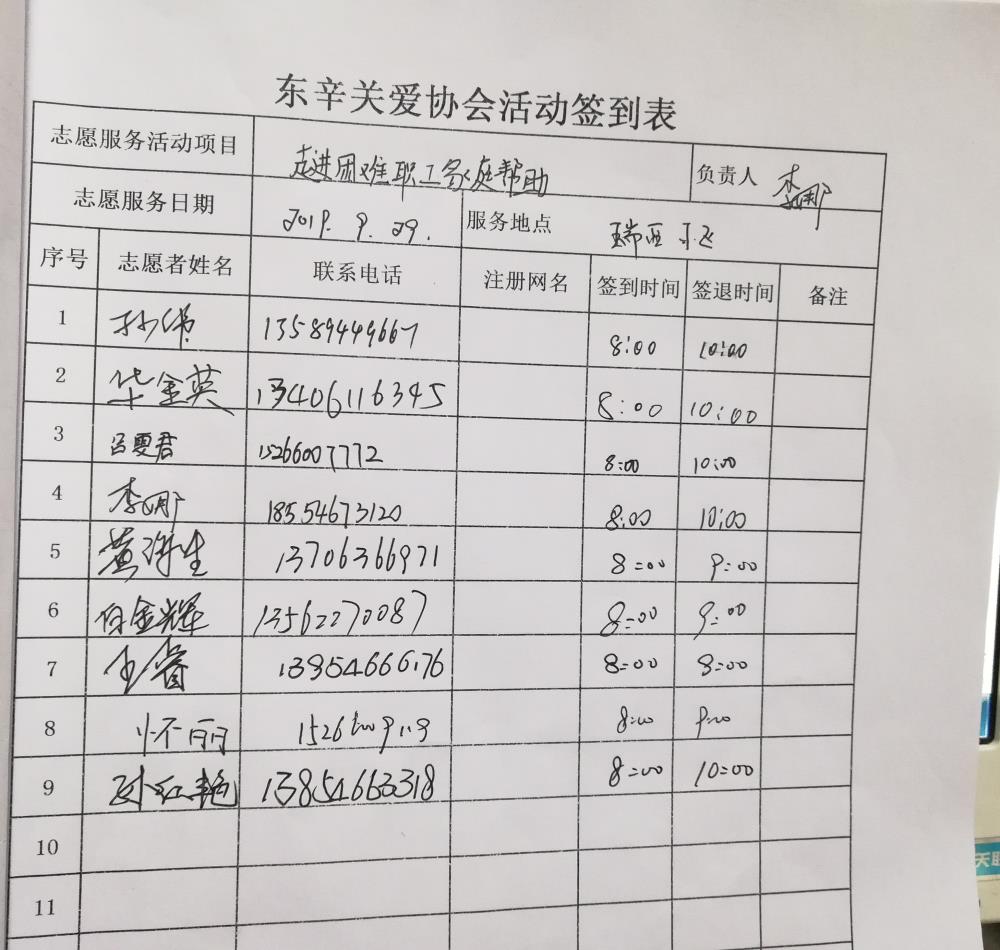 东辛关爱协会活动签到表
志愿服务活动项目 走进困难职工家庭帮助 负责人 李娜
志愿服务日期 2019. 9. 29. 服务地点
序号 志愿者姓名 联系电话 注册网名 签到时间 签退时间 备注
1 孙伟 13589449667 8:00 10:00
2 华金英 13406116345 8:00 10:00
3 吕雯君 15266007772 8:00 10:00
4 李娜 18554673120 8:00 10:00
5 13706366971 8:00 9:00
6 金辉 13562270087 8:00 9:00
7 王睿 13854666176 8:00 8:00
8 怀丽 8:00 9:00
9 孙红艳 13854663318 8:00 10:00
10
11